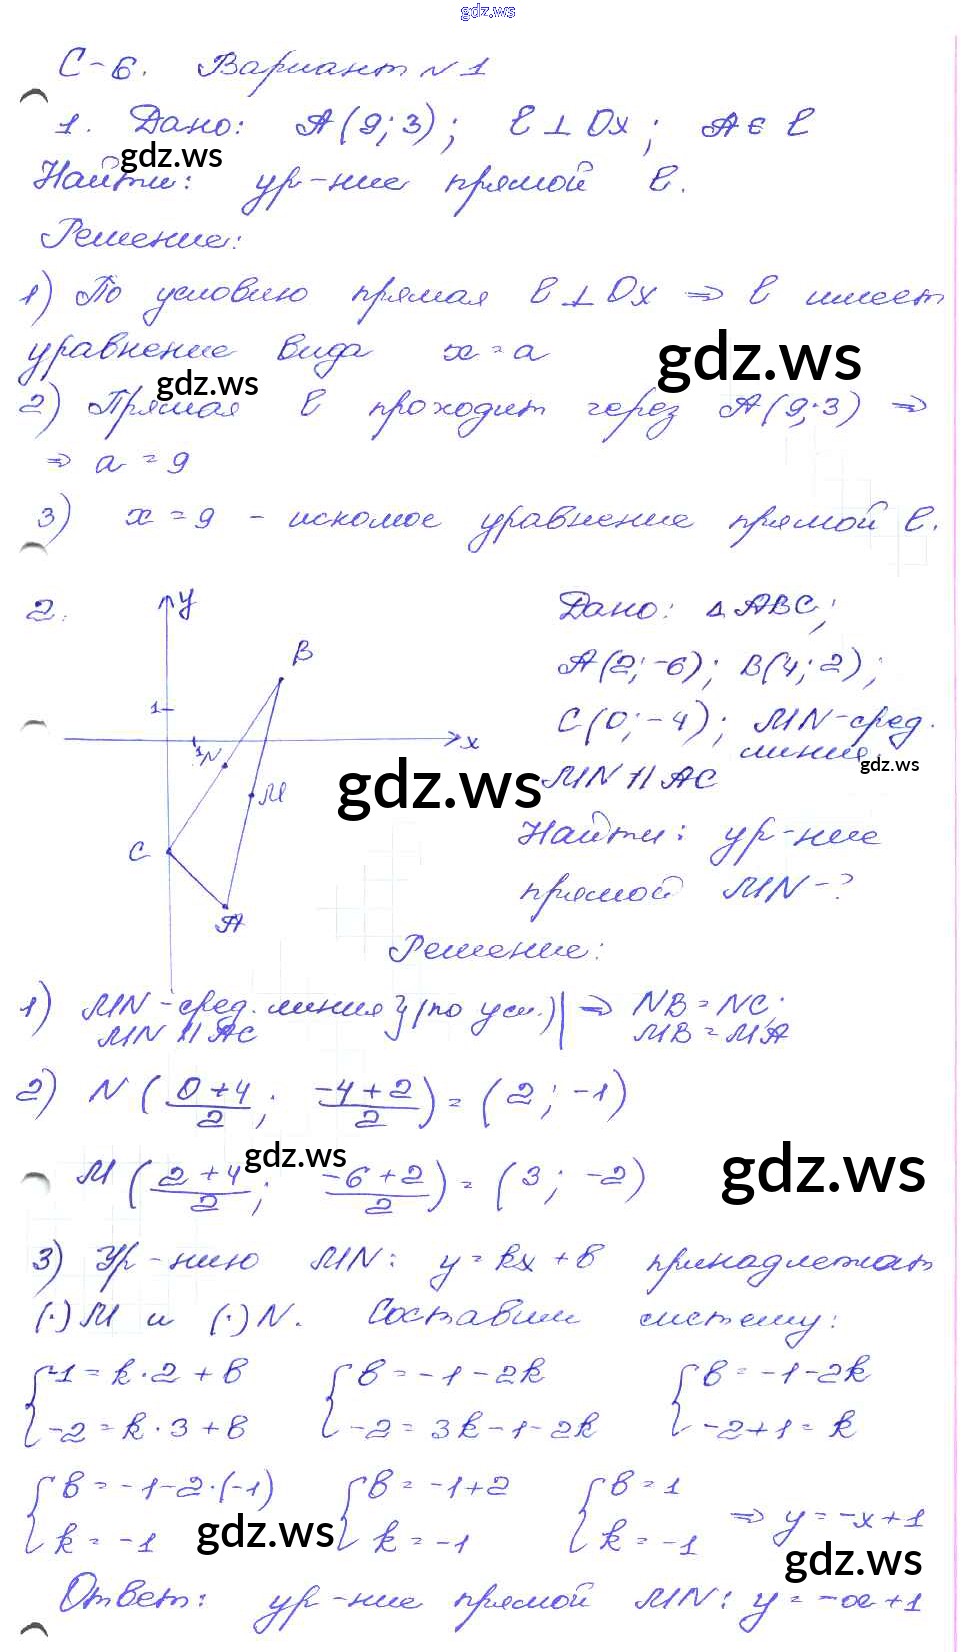 gdz.ws
С-6. Вариант №1
1. Дано: A(9;3); ℓ⊥Ox; A∈ℓ
gdz.ws
Найти: ур-ние прямой ℓ.
Решение:
1) По условию прямая ℓ⊥Ox ⇒ ℓ имеет
уравнение вида x=a
gdz.ws
gdz.ws
2) Прямая ℓ проходит через A(9;3) ⇒
⇒ a=9
3) x=9 - искомое уравнение прямой ℓ.
2.
y
B
1
x
1
N
M
C
A
Дано: △ABC;
A(2;-6); B(4;2);
C(0;-4); MN-сред.
линия,
gdz.ws
MN || AC
gdz.ws
Найти: ур-ние
прямой MN-?
Решение:
1) MN-сред. линия } (по усл.) | ⇒ NB=NC;
MN || AC MB=MA
2) N((0+4)/2; (-4+2)/2) = (2; -1)
gdz.ws
M((2+4)/2; (-6+2)/2) = (3; -2)
gdz.ws
3) Ур-нию MN: y=kx+b принадлежат
(·)M и (·)N. Составим систему:
{-1=k·2+b {b=-1-2k {b=-1-2k
{-2=k·3+b {-2=3k-1-2k {-2+1=k
{b=-1-2·(-1) {b=-1+2 {b=1
{k=-1 {k=-1 {k=-1 ⇒ y=-x+1
gdz.ws
gdz.ws
Ответ: ур-ние прямой MN: y=-x+1